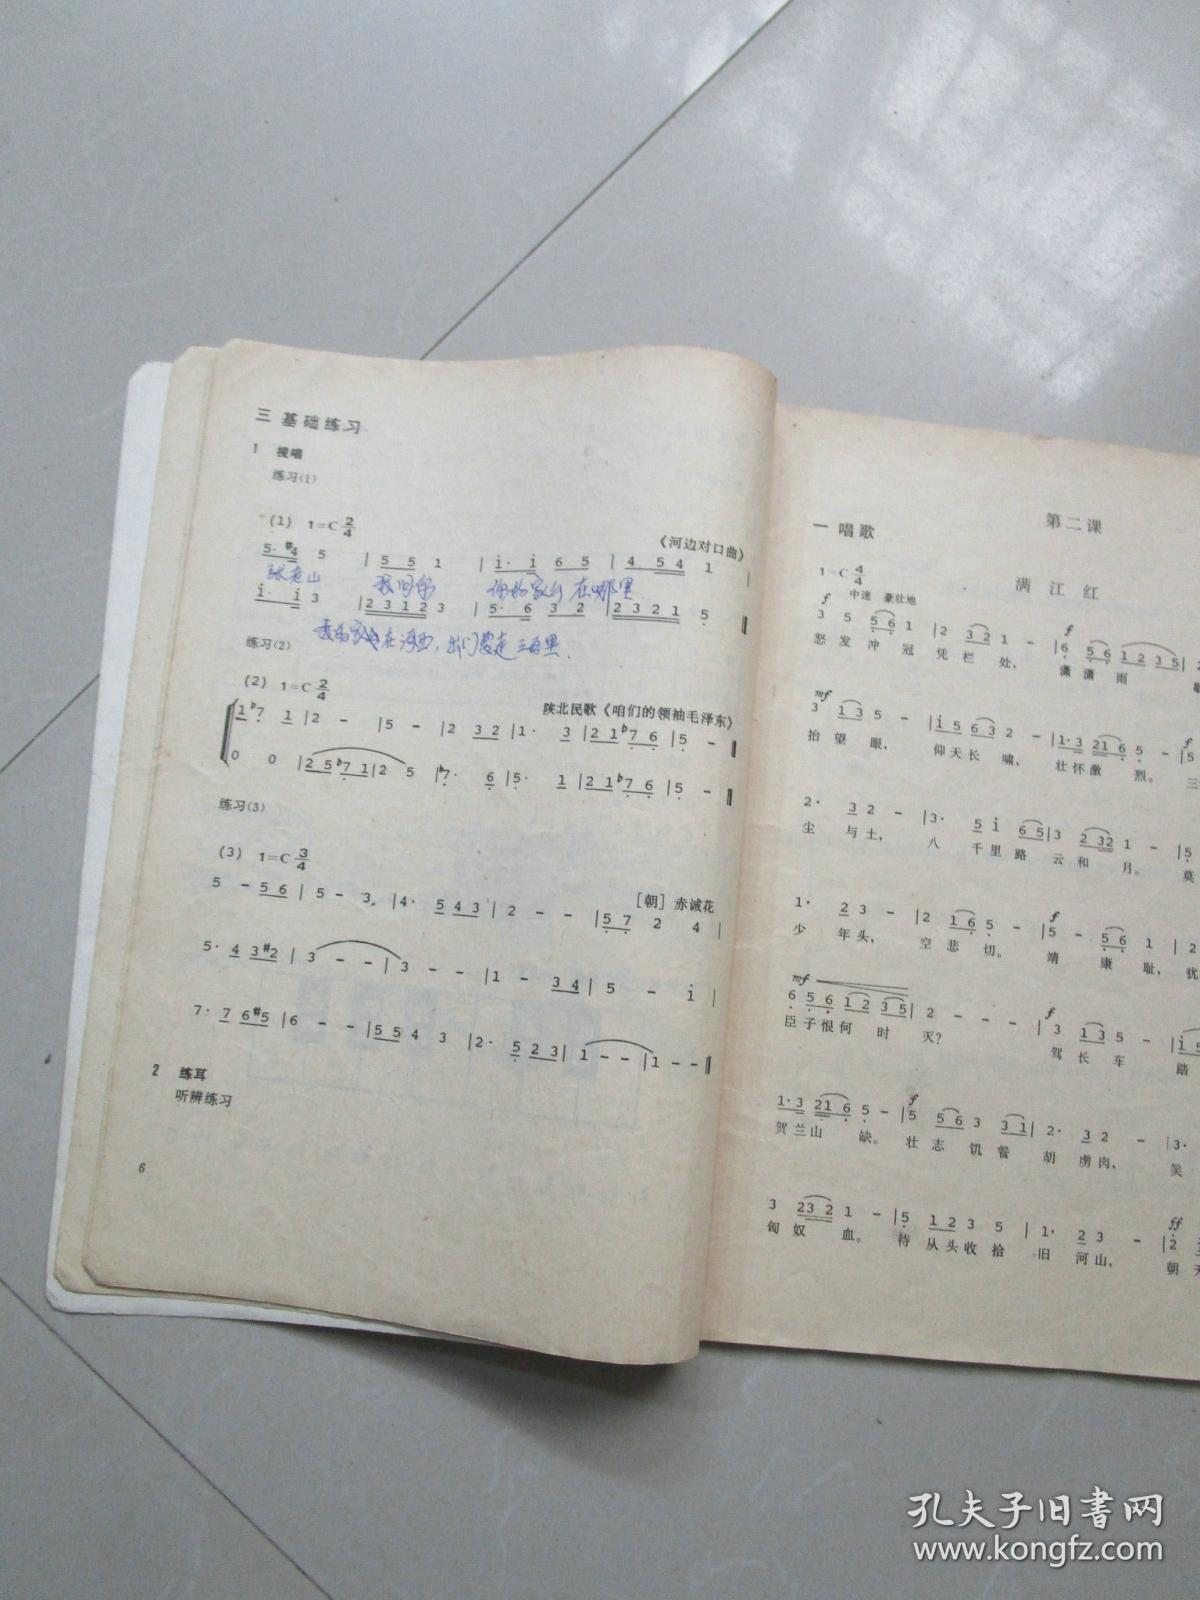 三 基础练习
1 视唱
练习(1)
(1) 1=C 2/4
《河边对口曲》
5· #4 5 | 5 5 1 | i· i 6 5 | 4 5 4 1 |
张老山 我问你 你的家乡在哪里
i· i 3 | 2 3 1 2 3 | 5· 6 3 2 | 2 3 2 1 5 ‖
我的家在河西，出门要走三百里.
练习(2)
(2) 1=C 2/4
陕北民歌《咱们的领袖毛泽东》
1 b7 1 | 2 - | 5 - | 2 3 2 | 1· 3 | 2 1 b7 6 | 5 - ‖
0 0 | 2 5 b7 1 | 2 5 | b7· 6 | 5· 1 | 2 1 b7 6 | 5 - ‖
练习(3)
(3) 1=C 3/4
[朝] 赤诚花
5 - 5 6 | 5 - 3 | 4· 5 4 3 | 2 - - | 5 7 2 4 |
5· 4 3 #2 | 3 - - | 3 - - | 1 - 3 4 | 5 - i |
7· 7 6 #5 | 6 - - | 5 5 4 3 | 2· 5 2 3 | 1 - - | 1 - - ‖
2 练耳
听辨练习
6
第二课
一 唱歌
满江红
1=C 4/4
中速 豪壮地
f f
3 5 5 6 1 | 2 3 2 1 - | 6 5 6 1 2 3 5 | 2
怒发冲冠凭栏处， 潇潇雨
mf
3 1 3 5 - | i 5 6 3 2 - | 1· 3 2 1 6 5 - | 5
抬望眼， 仰天长啸， 壮怀激烈。 三
2· 3 2 - | 3· 5 i 6 5 | 3 2 3 2 1 - | 5
尘与土， 八千里路云和月。 莫
f
1· 2 3 - | 2 1 6 5 - | 5 - 5 6 1 | 2
少年头， 空悲切。 靖康耻， 犹
mf f
6 5 6 1 2 3 5 | 2 - - - | 3 1 3 5 - | i 5
臣子恨何时灭？ 驾长车 踏
f
1· 3 2 1 6 5 - | 5 5 6 3 3 1 | 2· 3 2 - | 3·
贺兰山缺。 壮志饥餐胡虏肉， 笑
ff
3 2 3 2 1 - | 5 1 2 3 5 | 1· 2 3 - | 2
匈奴血。 待从头收拾旧河山， 朝天
孔夫子旧书网
www.kongfz.com